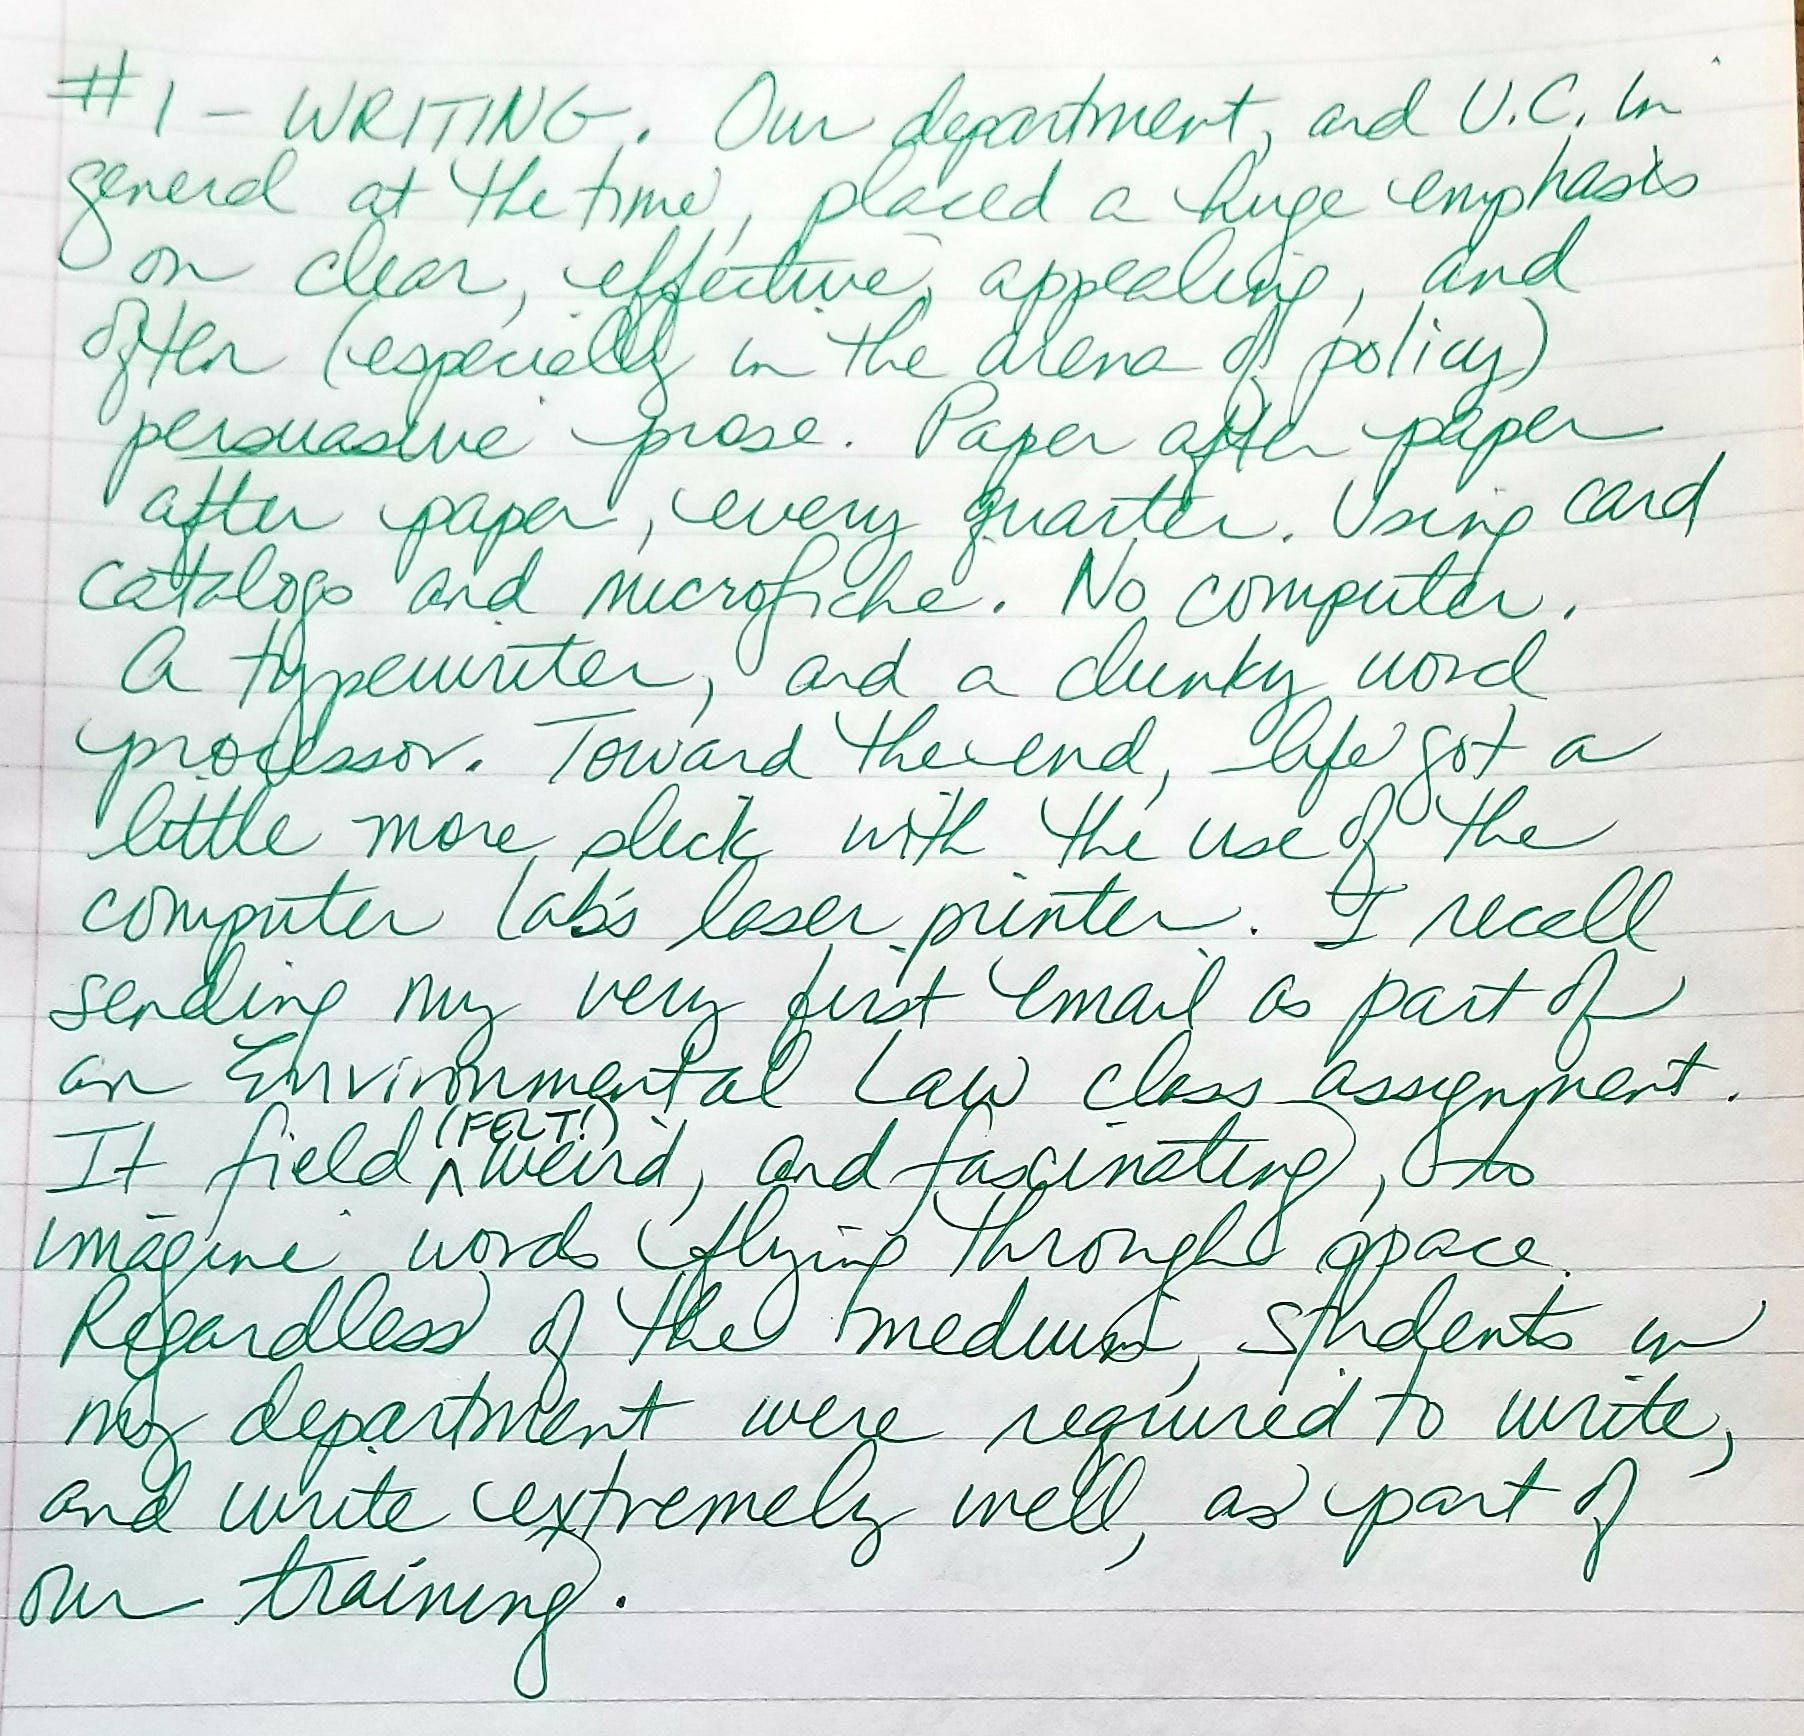 #1 - WRITING. Our department, and U.C. in
general at the time, placed a huge emphasis
on clear, effective, appealing, and
often (especially in the arena of policy)
persuasive prose. Paper after paper
after paper, every quarter. Using card
catalogs and microfiche. No computer.
A typewriter, and a clunky word
processor. Toward the end, life got a
little more slick with the use of the
computer lab's laser printer. I recall
sending my very first email as part of
an Environmental Law class assignment.
(FELT!)
It field ^ weird, and fascinating, to
imagine words flying through space.
Regardless of the medium, students in
my department were required to write,
and write extremely well, as part of
our training.